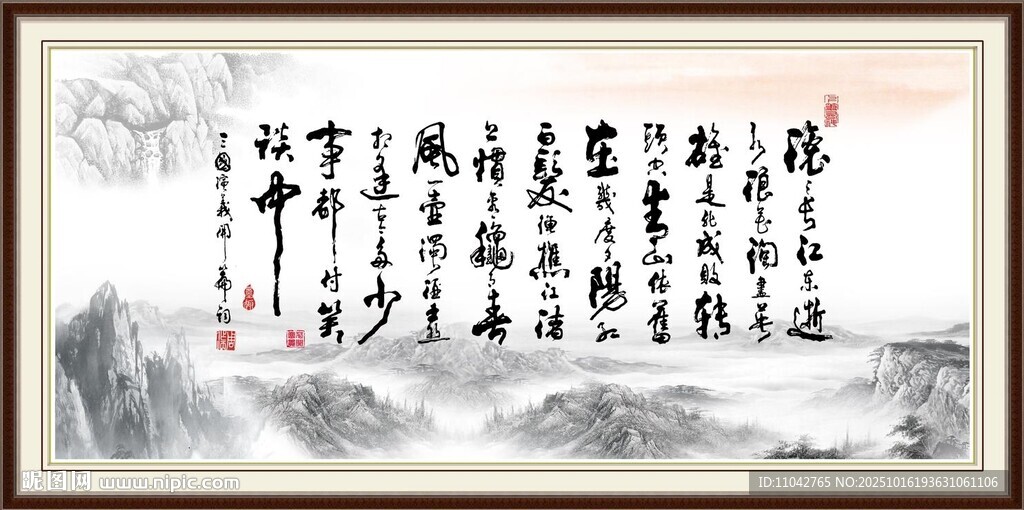 滚〻长江东逝
水浪花淘盡英
雄是非成敗转
頭空青山依舊
在幾度夕陽红
白髮漁樵江渚
上慣看秋月春
風一壺濁酒喜
相逢古今多少
事都付笑
谈中
三國演義開篇词
昵图网 www.nipic.com
ID:11042765 NO:20251016193631061106